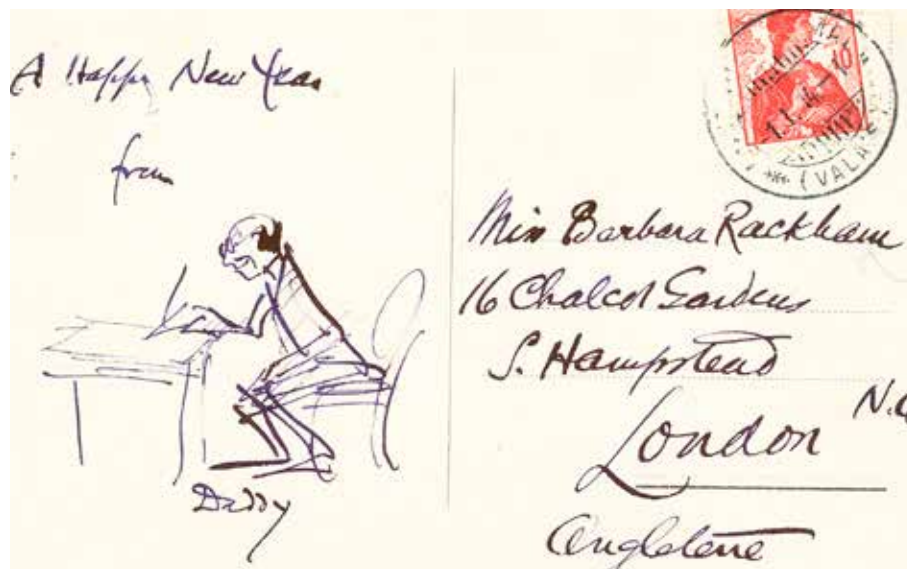 A Happy New Year
from
Daddy
Miss Barbara Rackham
16 Chalcot Gardens
S. Hampstead
London
Angleterre
10
(VALAIS)